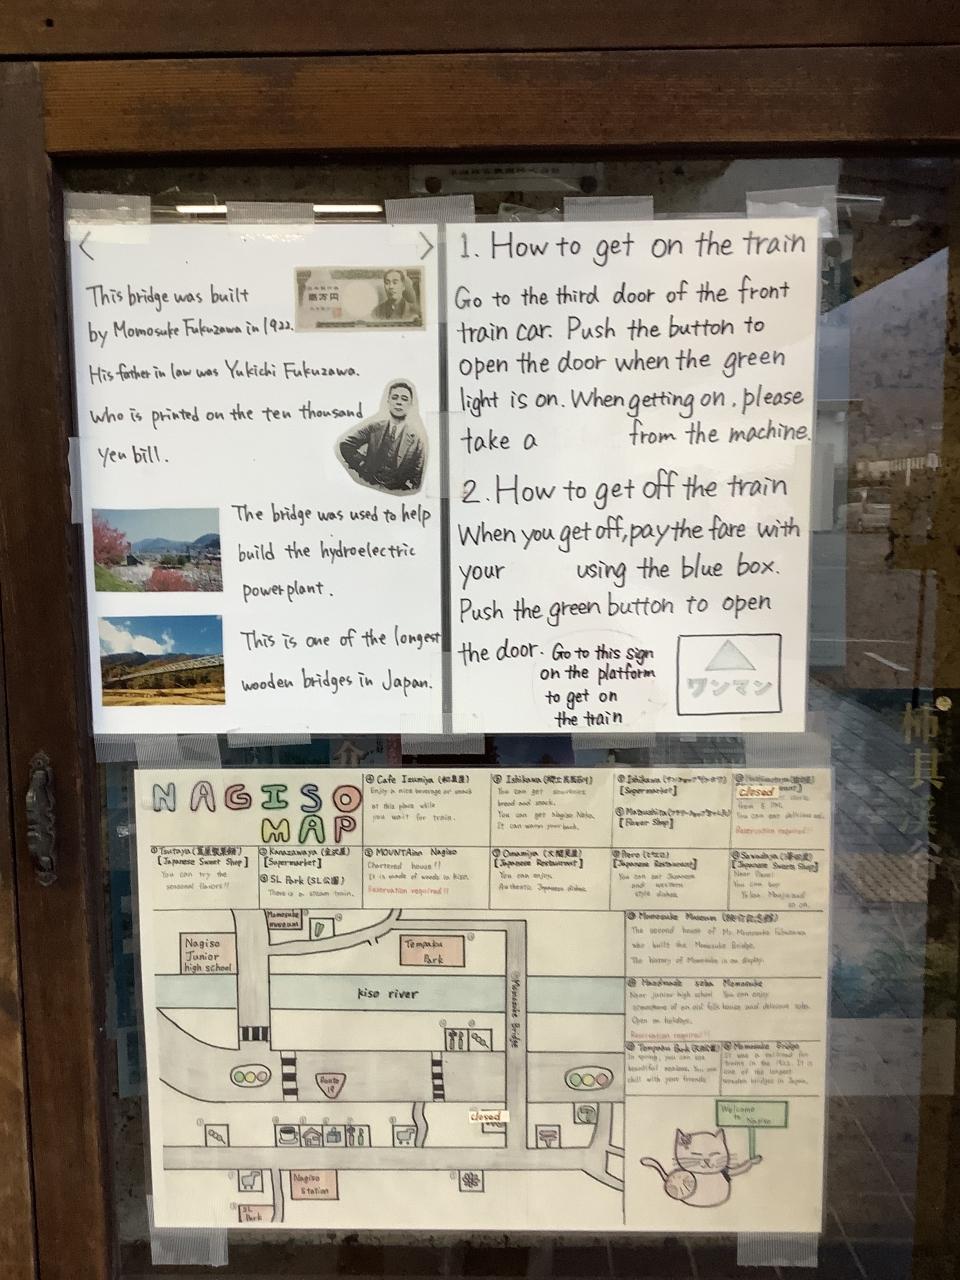 This bridge was built
by Momosuke Fukuzawa in 1922.
His father in law was Yukichi Fukuzawa.
who is printed on the ten thousand
yen bill.
壱万円
The bridge was used to help
build the hydroelectric
powerplant.
This is one of the longest
wooden bridges in Japan.
1. How to get on the train
Go to the third door of the front
train car. Push the button to
open the door when the green
light is on. When getting on, please
take a from the machine.
2. How to get off the train
When you get off, pay the fare with
your using the blue box.
Push the green button to open
the door.
Go to this sign
on the platform
to get on
the train
ワンマン
NAGISO
MAP
Cafe Izumiya
Enjoy a nice beverage or snack
at this place while
you wait for train.
Ishikawa
You can get souvenirs
bread and snack.
You can get Nagiso Neko.
It can warm your back.
Ishikawa
[Supermarket]
Matsushita
[Flower Shop]
closed
You can eat delicious
Reservation required!!
Tsutaya
[Japanese Sweet Shop]
You can try the
seasonal flavors!!
Kanazawaya (金沢屋)
[Supermarket]
SL Park (SL公園)
There is a steam train.
MOUNTAin Nagiso
Chartered house!!
It is made of woods in Kiso.
Reservation required!!
Omamiya
[Japanese Restaurant]
You can enjoy
Authentic Japanese dishes.
Pero
[Japanese Restaurant]
You can eat Japanese
and western
style dishes.
Sawadaya
[Japanese Sweets Shop]
You can buy
so on.
Momosuke Museum
The second house of Mr. Momosuke Fukuzawa
who built the Momosuke Bridge.
The history of Momosuke is on display.
Handmade soba Momosuke
Near junior high school You can enjoy
atmosphere of an old folk house and delicious soba.
Open on holidays.
Reservation required!!
Tempaku Park
In spring, you can see
beautiful azaleas. You can
chill with your friends
Momosuke Bridge
It was a railroad for
trains in the 1922. It is
one of the longest
wooden bridges in Japan.
Momosuke
museum
Nagiso
Junior
high school
Tempaku
Park
kiso river
Momosuke Bridge
Route
19
closed
Nagiso
Station
SL
Park
Welcome
to
Nagiso
柿其渓谷